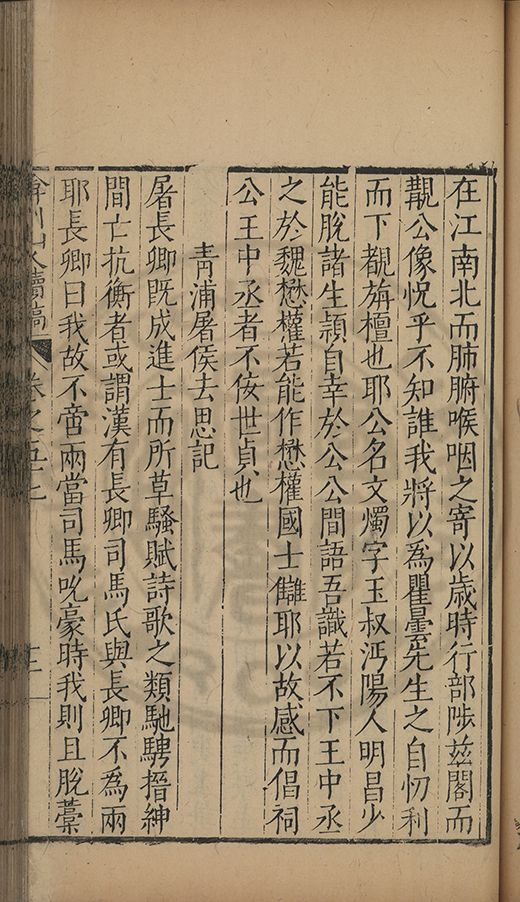 在江南北而肺腑喉咽之寄以歲時行部陟茲閣而
覩公像怳乎不知誰我將以爲瞿曇先生之自忉利
而下覩旃檀也耶公名文燭字玉叔沔陽人明昌少
能脫諸生穎自幸於公公間語吾識若不下王中丞
之於魏懋權若能作懋權國士讎耶以故感而倡祠
公王中丞者不佞世貞也
青浦屠侯去思記
屠長卿旣成進士而所草騷賦詩歌之類馳騁搢紳
間亡抗衡者或謂漢有長卿司馬氏與長卿不爲兩
耶長卿曰我故不啻兩當司馬吮豪時我則且脫藁
弇州山人續稿
卷之五十